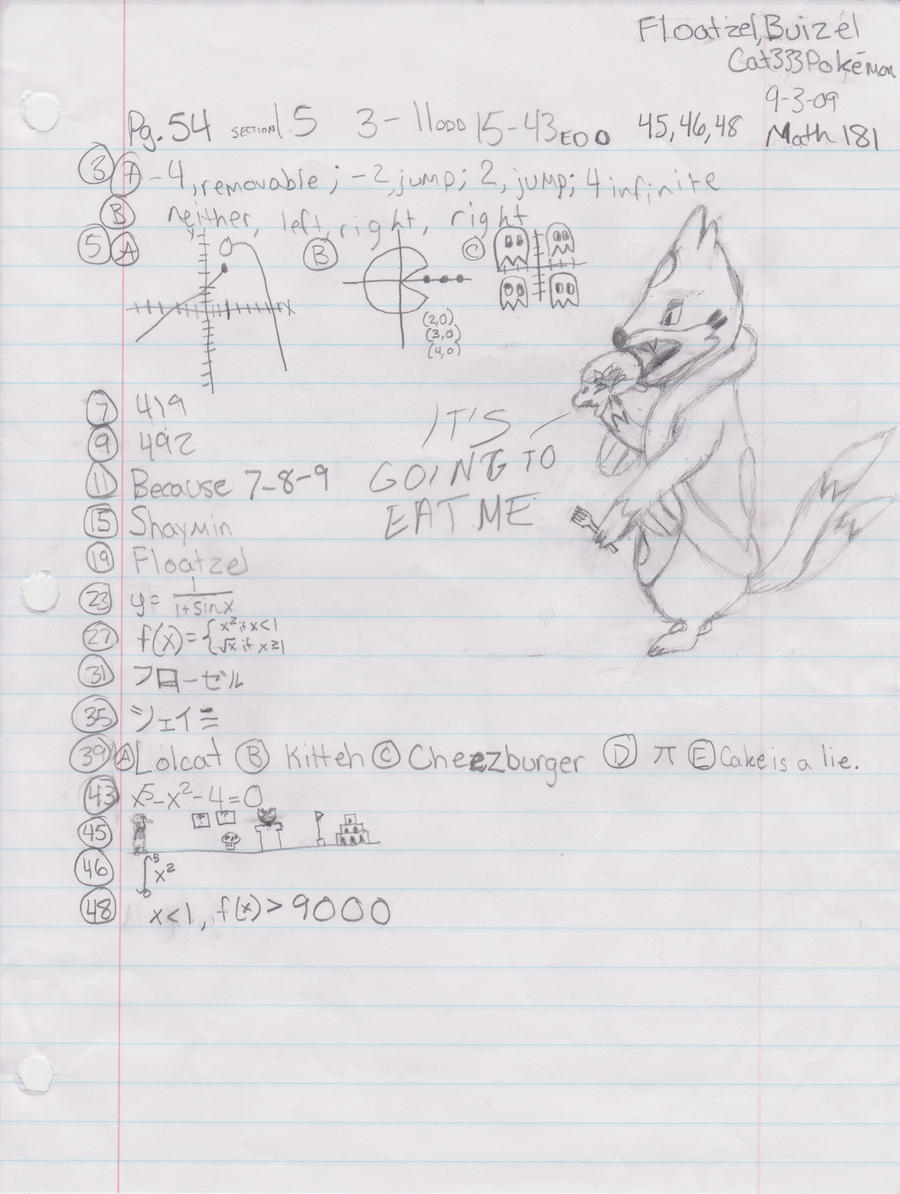 Floatzel, Buizel
Cat333Pokémon
9-3-09
Pg. 54 SECTION 1.5 3-11ODD 15-43EOO 45,46,48 Math 181
3 A -4, removable; -2, jump; 2, jump; 4 infinite
B neither, left, right, right
5 A B C
y
x
(2,0)
(3,0)
(4,0)
7 419
9 492
11 Because 7-8-9
IT'S
GOING TO
EAT ME
15 Shaymin
19 Floatzel
23 y= 1/1+sinx
27 f(x)={x² if x<1
√x if x≥1
31 フローゼル
35 シェイミ
39 A Lolcat B Kitteh C Cheezburger D π E Cake is a lie.
43 x⁵-x²-4=0
45 ? ?
46 ∫₀⁵ x²
48 x<1, f(x)>9000